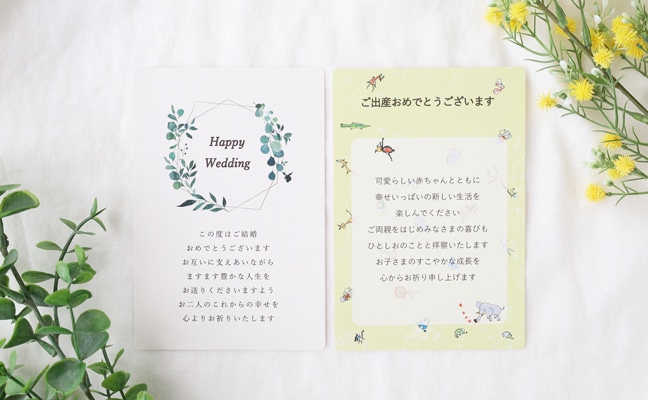 Happy
Wedding
この度はご結婚
おめでとうございます
お互いに支えあいながら
ますます豊かな人生を
お送りくださいますよう
お二人のこれからの幸せを
心よりお祈りいたします
ご出産おめでとうございます
可愛らしい赤ちゃんとともに
幸せいっぱいの新しい生活を
楽しんでください
ご両親をはじめみなさまの喜びも
ひとしおのことと拝察いたします
お子さまのすこやかな成長を
心からお祈り申し上げます